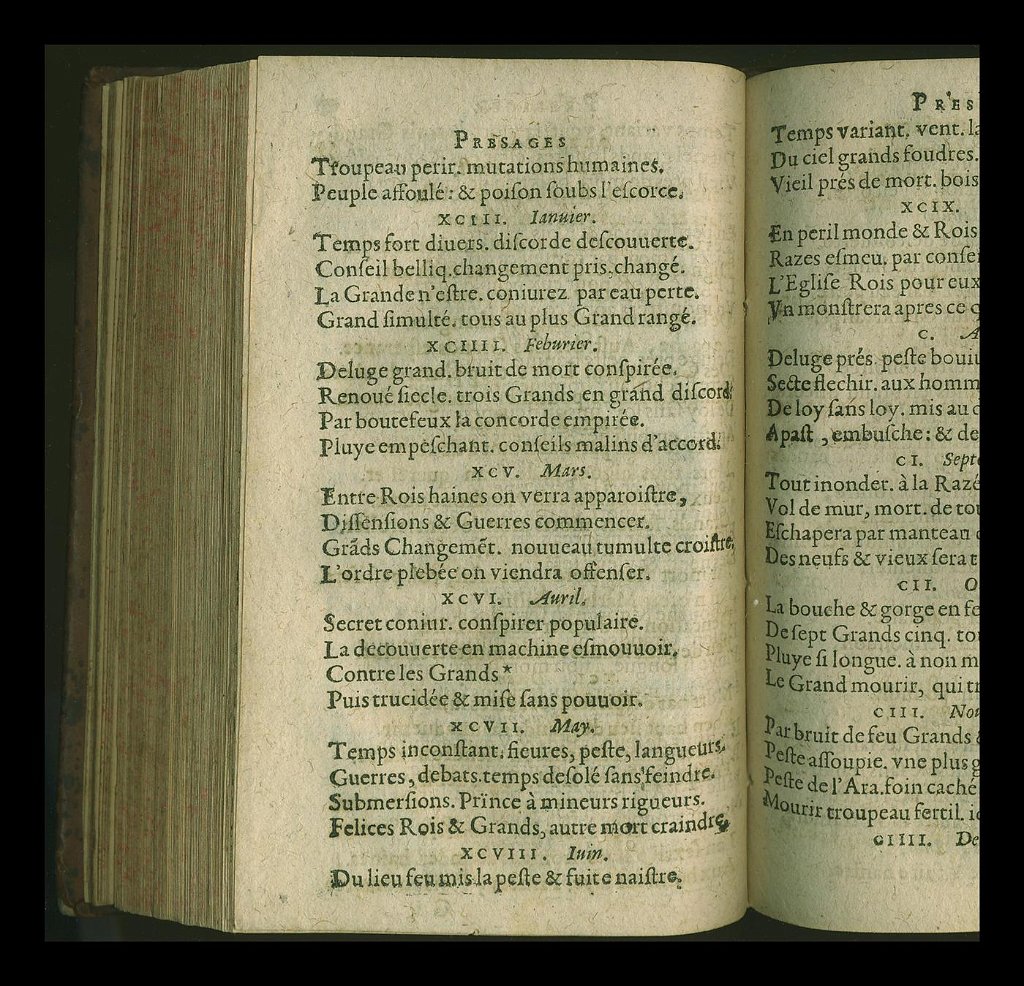 PRESAGES
Troupeau perir. mutations humaines.
Peuple affoulé: & poiſon ſoubs l'eſcorce.
XCIII. Ianuier.
Temps fort diuers. diſcorde deſcouuerte.
Conſeil belliq. changement pris. changé.
La Grande n'eſtre. coniurez par eau perte.
Grand ſimulté. tous au plus Grand rangé.
XCIIII. Feburier.
Deluge grand. bruit de mort conſpirée.
Renoué ſiecle. trois Grands en grand diſcord.
Par boutefeux la concorde empirée.
Pluye empeſchant. conſeils malins d'accord.
XCV. Mars.
Entre Rois haines on verra apparoiſtre,
Diſſenſions & Guerres commencer.
Grãds Changemẽt. nouueau tumulte croiſtre,
L'ordre plebée on viendra offenſer.
XCVI. Auril.
Secret coniur. conſpirer populaire.
La decouuerte en machine eſmouuoir.
Contre les Grands*
Puis trucidée & miſe ſans pouuoir.
XCVII. May.
Temps inconſtant. fieures, peſte, langueurs.
Guerres, debats. temps deſolé ſans feindre.
Submerſions. Prince à mineurs rigueurs.
Felices Rois & Grands, autre mort craindre.
XCVIII. Iuin.
Du lieu feu mis la peſte & fuite naiſtre.
PRES
Temps variant. vent. la
Du ciel grands foudres.
Vieil prés de mort. bois
XCIX.
En peril monde & Rois
Razes eſmeu. par conſei
L'Egliſe Rois pour eux
Vn monſtrera apres ce q
C. A
Deluge prés. peſte bouiu
Secte flechir. aux homm
De loy ſans loy. mis au d
Apaſt, embuſche: & de
CI. Septe
Tout inonder. à la Razé
Vol de mur, mort. de tou
Eſchapera par manteau
Des neufs & vieux ſera t
CII. O
La bouche & gorge en fe
De ſept Grands cinq. tou
Pluye ſi longue. à non m
Le Grand mourir, qui tr
CIII. Nou
Par bruit de feu Grands &
Peſte aſſoupie. vne plus g
Peſte de l'Ara. foin caché
Mourir troupeau fertil. ic
CIIII. De